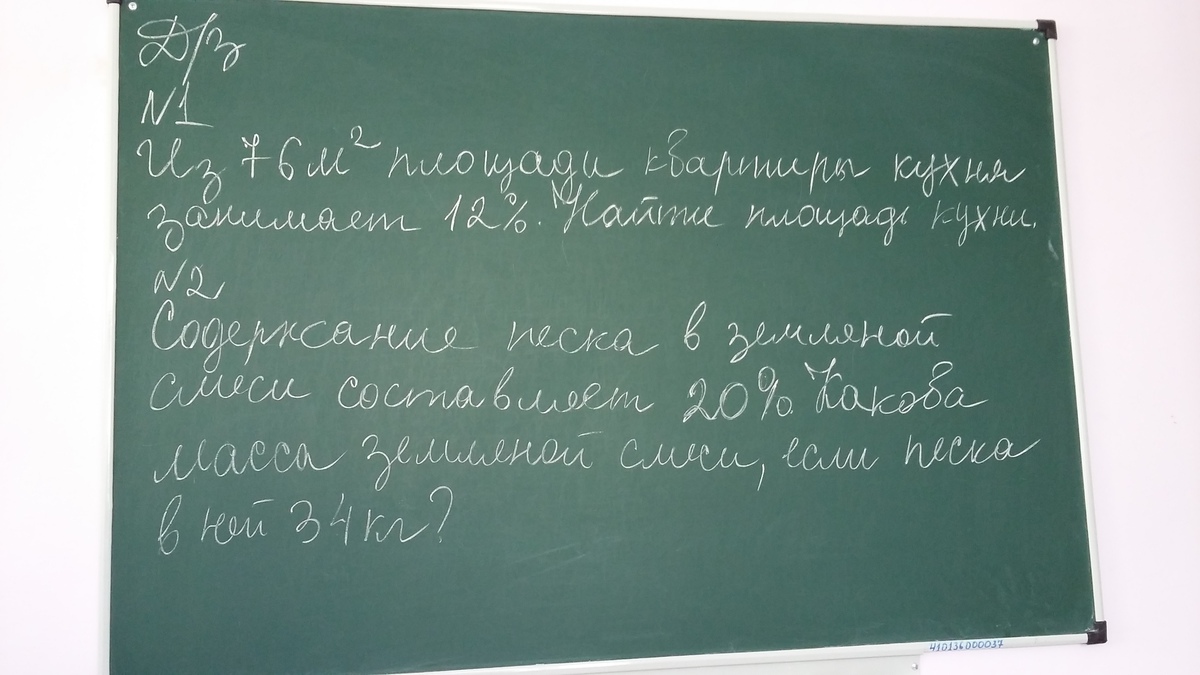 Д/з
N1
Из 76 м² площади квартиры кухня
занимает 12%. Найти площадь кухни.
N2
Содержание песка в земляной
смеси составляет 20%. Какова
масса земляной смеси, если песка
в ней 34 кг?
410136000037